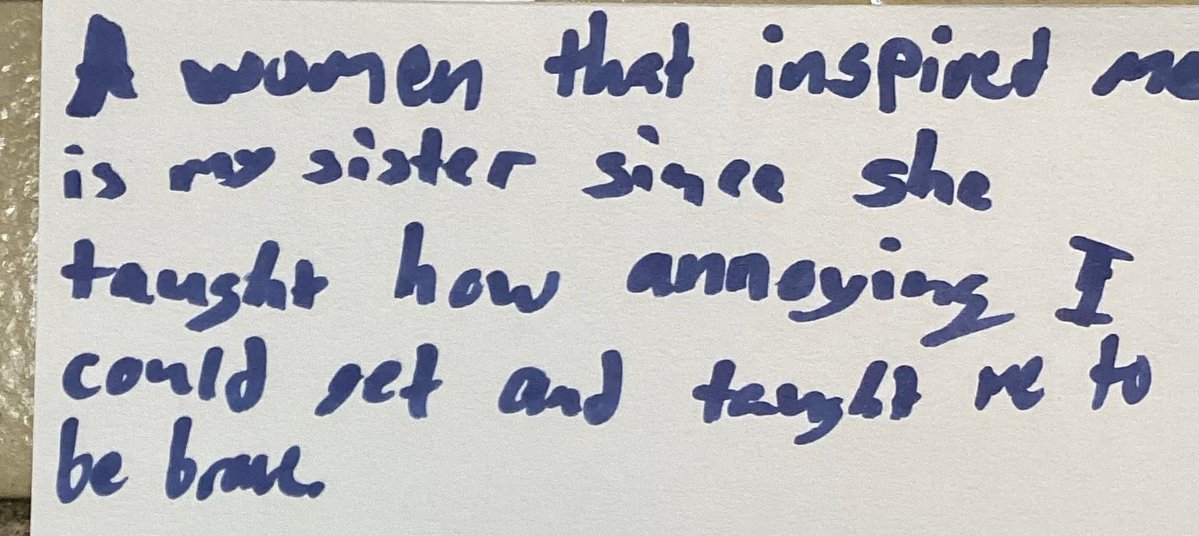 A women that inspired me
is my sister since she
taught how annoying I
could get and taught me to
be brave.